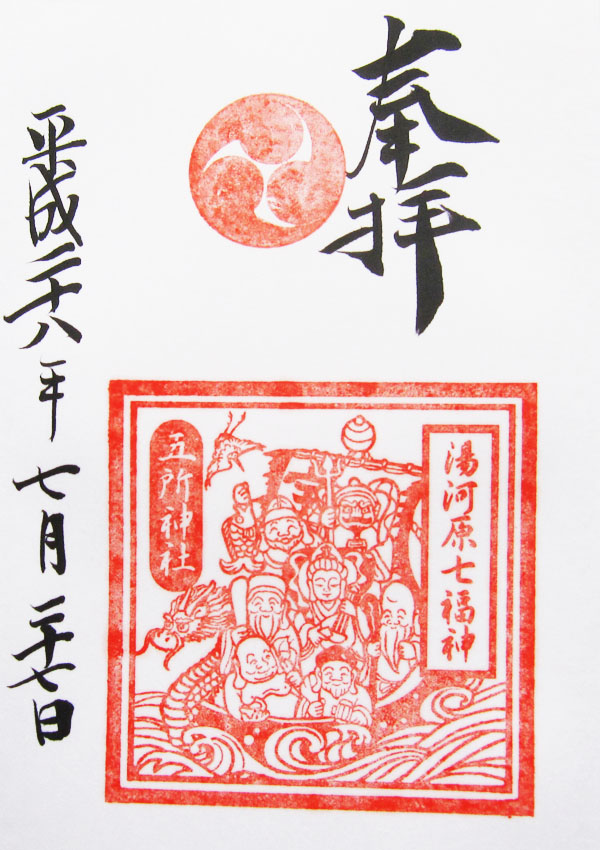 奉拝
湯河原七福神
五所神社
平成二十八年七月二十七日